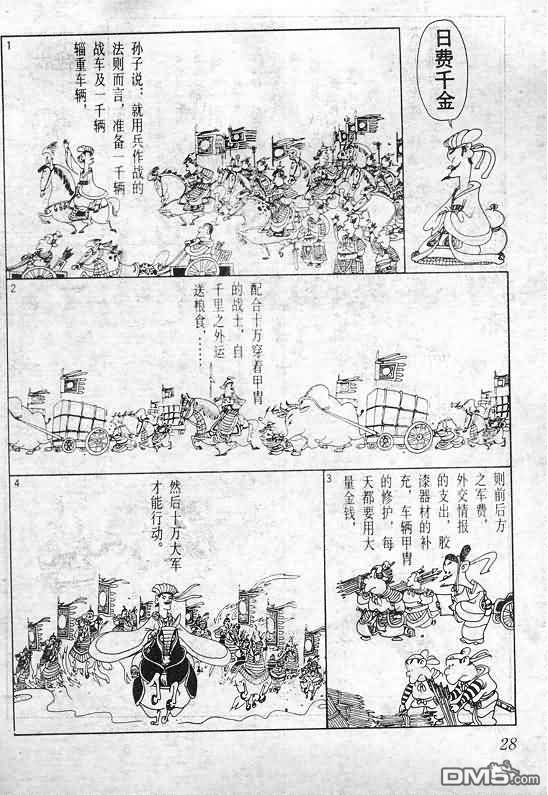 日费千金
1
孙子说：就用兵作战的
法则而言，准备一千辆
战车及一千辆
辎重车辆，
2
配合十万穿着甲胄
的战士，自
千里之外运
送粮食……
3
则前后方
之军费，
外交情报
的支出，胶
漆器材的补
充，车辆甲胄
的修护，每
天都要用大
量金钱，
4
然后十万大军
才能行动。
28
DM5.com